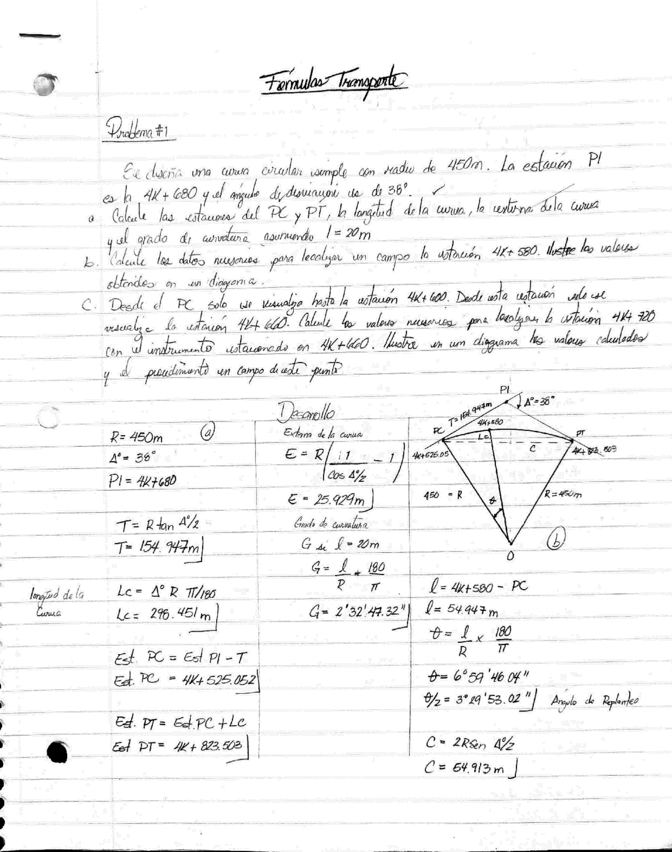 Fórmulas Transporte
Problema #1
Se diseña una curva circular simple con radio de 450m. La estación PI
es la 4K+680 y el ángulo de desviación es de 38°. ✓
a Calcule las estaciones del PC y PT, la longitud de la curva, la externa de la curva
y el grado de curvatura asumiendo l = 20m
b. Calcule los datos necesarios para localizar en campo la estación 4K+580. Ilustre los valores
obtenidos en un diagrama.
C. Desde el PC solo se visualiza hasta la estación 4K+600. Desde esta estación solo se
visualiza la estación 4K+660. Calcule los valores necesarios para localizar la estación 4K+720
con el instrumento estacionado en 4K+660. Ilustre en un diagrama los valores calculados
y el procedimiento en campo de este punto
Desarrollo
(a)
R = 450m
Δ° = 38°
PI = 4K+680
T = R tan Δ°/2
T = 154.947m
longitud de la
Curva
Lc = Δ° R π/180
Lc = 298.451 m
Est. PC = Est PI - T
Est. PC = 4K+525.052
Est. PT = Est. PC + Lc
Est PT = 4K+823.503
Externa de la curva
E = R( 1 / cos Δ°/2 - 1 )
E = 25.929m
Grado de curvatura
G si l = 20m
G = l/R * 180/π
G = 2°32'47.32"
PI
Δ° = 38°
T = 154.947m
4K+580
PC
Lc
PT
4K+525.05
C
4K+823.503
450 = R
θ
R = 450m
O
(b)
l = 4K+580 - PC
l = 54.947m
θ = l/R x 180/π
θ = 6°59'46.04"
θ/2 = 3°29'53.02" Ángulo de Replanteo
C = 2RSen Δ°/2
C = 54.913m